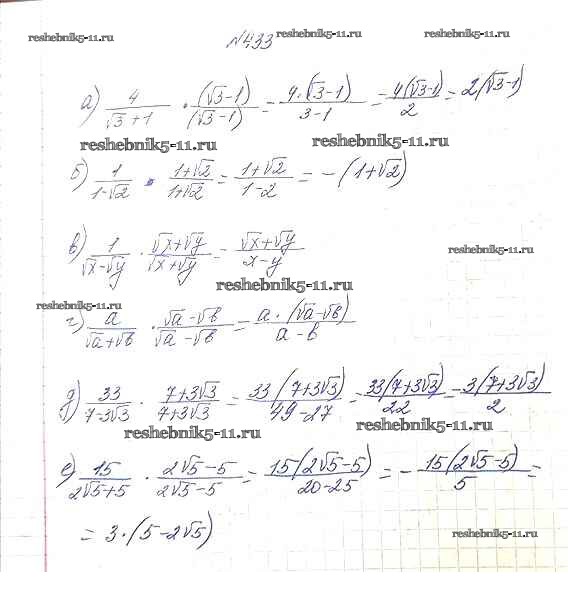 reshebnik5-11.ru
reshebnik5-11.ru
reshebnik5-11.ru
№433
а) 4/(√3+1) · (√3-1)/(√3-1) = 4·(√3-1)/(3-1) = 4(√3-1)/2 = 2(√3-1)
reshebnik5-11.ru
reshebnik5-11.ru
б) 1/(1-√2) · (1+√2)/(1+√2) = (1+√2)/(1-2) = -(1+√2)
в) 1/(√x-√y) · (√x+√y)/(√x+√y) = (√x+√y)/(x-y)
reshebnik5-11.ru
reshebnik5-11.ru
reshebnik5-11.ru
г) a/(√a+√b) · (√a-√b)/(√a-√b) = a·(√a-√b)/(a-b)
д) 33/(7-3√3) · (7+3√3)/(7+3√3) = 33(7+3√3)/(49-27) = 33(7+3√3)/22 = 3(7+3√3)/2
reshebnik5-11.ru
reshebnik5-11.ru
е) 15/(2√5+5) · (2√5-5)/(2√5-5) = 15(2√5-5)/(20-25) = -15(2√5-5)/5 =
= 3·(5-2√5)
reshebnik5-11.ru
reshebnik5-11.ru